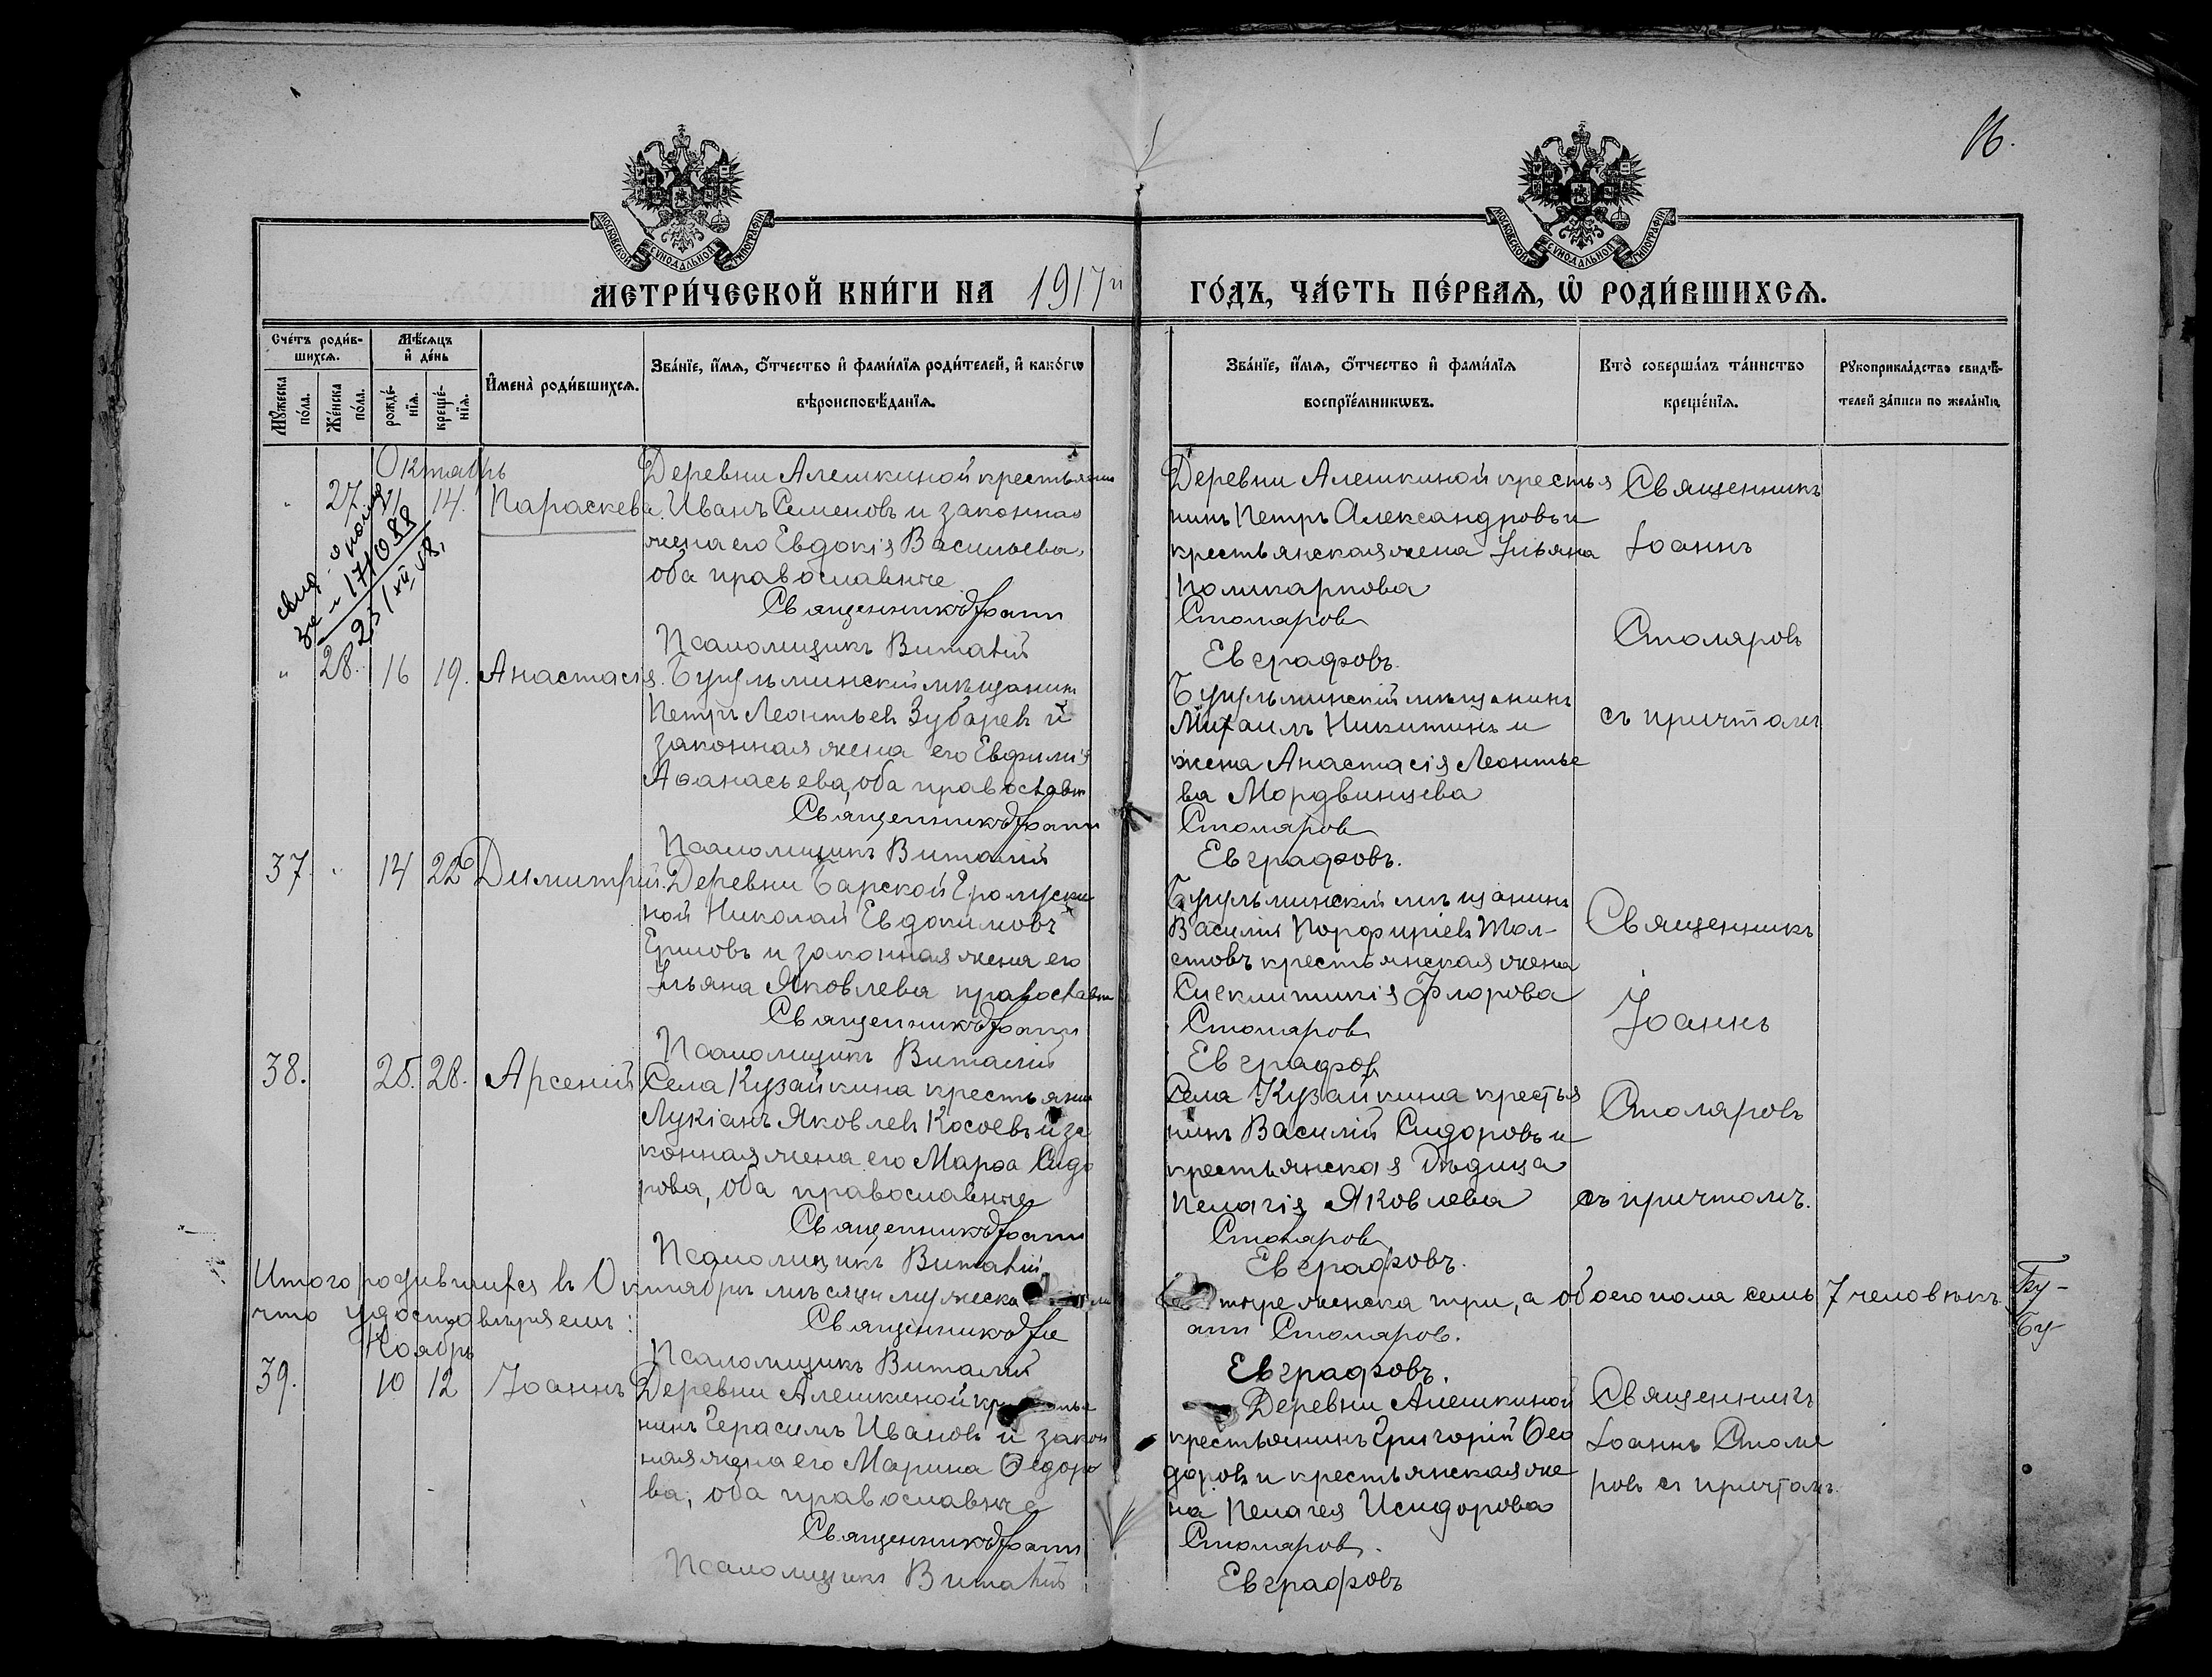 16.
МОСКОВСКОЙ СУНОДАЛЬНОЙ ТИПОГРАФІИ
МОСКОВСКОЙ СУНОДАЛЬНОЙ ТИПОГРАФІИ
МЕТРИ́ЧЕСКОЙ КНИ́ГИ НА 1917й ГО́ДЪ, ЧА́СТЬ ПЕ́РВАѦ, Ѽ РОДИ́ВШИХСѦ.
Сче́тъ роди́в-
шихсѧ.
Мꙋ́жеска по́ла.
Же́нска по́ла.
Мѣ́сѧцъ
и҆ де́нь
рожде́-
нїѧ.
креще́-
нїѧ.
И҆мена̀ роди́вшихсѧ.
Зва́нїе, и҆́мѧ, ѻ҆́тчество и҆ фами́лїѧ роди́телей, и҆ како́гѡ
вѣроисповѣ́данїѧ.
Зва́нїе, и҆́мѧ, ѻ҆́тчество и҆ фами́лїѧ
воспрїе́мникѡвъ.
Кто̀ соверша́лъ та́инство
креще́нїѧ.
Рꙋкоприкла́дство свидѣ́-
телей за́писи по жела́нїю
Октябрь
" 27. 11 14. Параскева.
Деревни Алешкиной крестьянин
Иванъ Семеновъ и законная
жена его Евдокія Васильева,
оба православные
Священникъ Іоанн
Псаломщикъ Виталій
Деревни Алешкиной крестья
нинъ Петръ Александровъ и
крестьянская жена Ульяна
Поликарпова
Столяров
Евграфовъ.
Священникъ
Іоаннъ
Столяровъ
съ причтомъ
171088
23/XII 58.
" 28. 16 19. Анастасія.
Бугульминскій мѣщанин
Петръ Леонтьевъ Зубаревъ и
законная жена его Евфимія
Аѳанасьева, оба православн
Священникъ Іоанн
Псаломщикъ Виталій
Бугульминскій мѣщанинъ
Михаилъ Никитинъ и
жена Анастасія Леонтье
ва Мордвинцева
Столяров
Евграфовъ.
37. " 14 22 Димитрій.
Деревни Барской
Николай Евдокимовъ
и законная жена его
Ульяна Яковлева православн
Священникъ Іоанн
Псаломщикъ Виталій
Бугульминскій мѣщанинъ
Василій Порфиріевъ Тол-
стовъ крестьянская жена
Флорова
Столяров
Евграфов
Священникъ
Іоаннъ
Столяровъ
съ причтомъ.
38. 25. 28. Арсеній
Села Кузайкина крестьянин
Лукіанъ Яковлевъ Косоевъ и за
конная жена его Марѳа Сидо
рова, оба православные
Священникъ Іоанн
Псаломщикъ Виталій
Села Кузайкина крестья
нинъ Василій Сидоровъ и
крестьянская дѣвица
Пелагія Яковлева
Столяров
Евграфовъ.
Итого родившихся въ Октябрѣ мѣсяцѣ мужеска женска три, а обоего пола семь 7 человѣкъ.
что удостовѣряемъ: Священникъ Іоанн Столяров.
Псаломщикъ Виталій Евграфовъ.
Бу-
Бу
Ноябрь
39. 10 12 Іоаннъ
Деревни Алешкиной
нинъ Герасимъ Ивановъ и закон
ная жена его Марина Ѳедоро
ва, оба православные
Священникъ Іоанн
Псаломщикъ Виталій
Деревни Алешкиной
крестьянинъ Григорій Ѳео
доровъ и крестьянская же
на Пелагея Исидорова
Столяров.
Евграфовъ
Священникъ
Іоаннъ Столя
ровъ съ причтомъ.